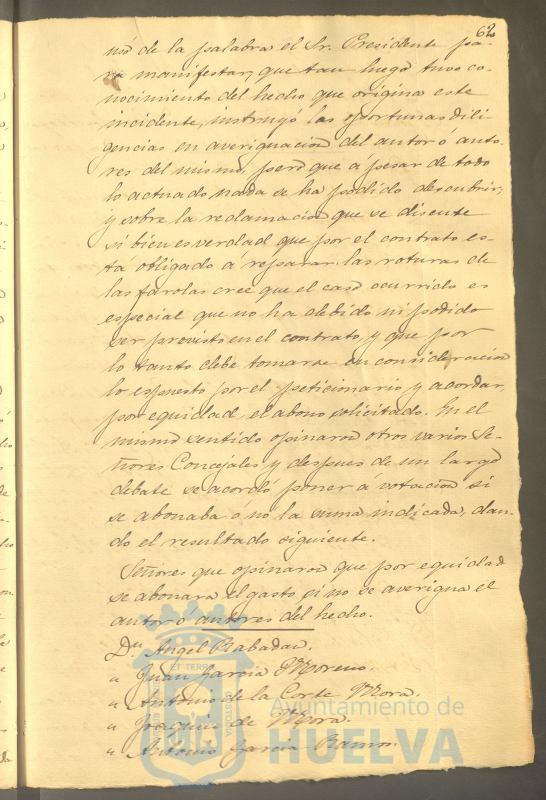 62
nó de la palabra el Sr. Presidente pa-
ra manifestar, que tan luego tuvo co-
nocimiento del hecho que origina este
incidente, instruyó las oportunas dili-
gencias en averiguacion del autor ó auto-
res del mismo, pero que a pesar de todo
lo actuado nada se ha podido descubrir,
y sobre la reclamacion que se discute
si bien es verdad que por el contrato es-
tá obligado á reparar las roturas de
las farolas cree que el caso ocurrido es
especial que no ha debido ni podido
ser previsto en el contrato, y que por
lo tanto debe tomarse en consideracion
lo espuesto por el peticionario y acordar,
por equidad, el abono solicitado. En el
mismo sentido opinaron otros varios Se-
ñores Concejales y despues de un largo
debate se acordó poner á votacion si
se abonaba ó no la suma indicada, dan-
do el resultado siguiente.
Señores que opinaron que por equidad
se abonara el gasto si no se averigua el
autor ó autores del hecho.
Dn. Angel Rabadan.
" Juan Garcia Moreno.
" Antonio de la Corte Mora.
" Joaquin de Mora.
" Antonio Garcia Ramos.
Ayuntamiento de
HUELVA